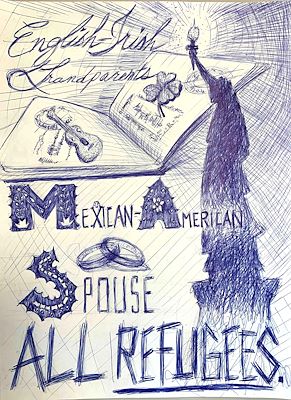 English-Irish
Grandparents
MEXICAN-AMERICAN
SPOUSE
ALL REFUGEES.